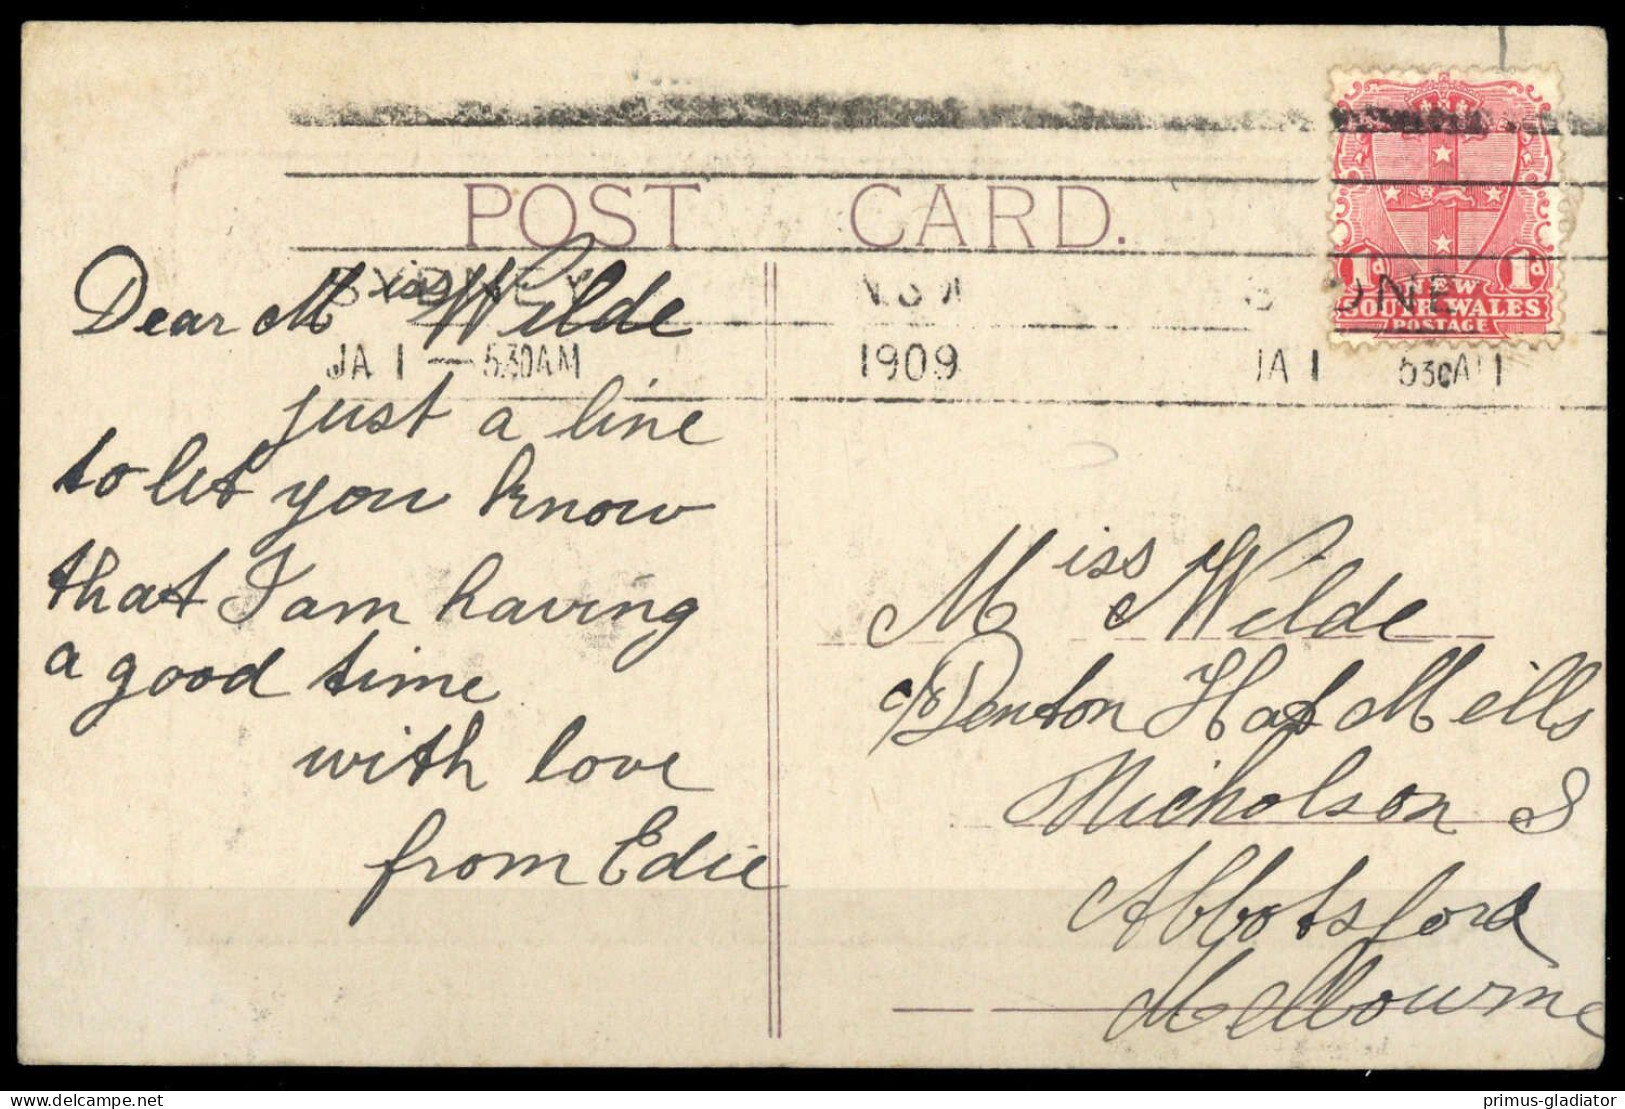 POST CARD.
SYDNEY N.S.W
JA 1 — 5.30AM 1909 JA 1 530AM
1d 1d
NEW
SOUTH WALES
POSTAGE
ONE
Dear Miss Wilde
just a line
to let you know
that I am having
a good time
with love
from Edie
Miss Wilde
c/o Denton Hat Mills
Nicholson S
Abbotsford
Melbourne
www.delcampe.net
primus-gladiator